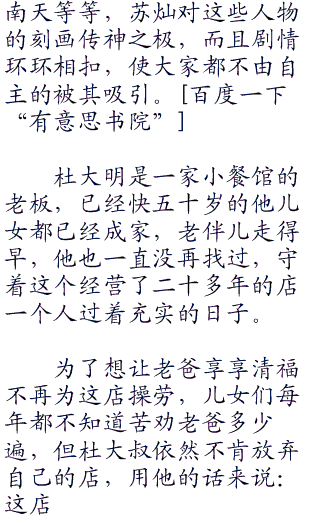 南天等等，苏灿对这些人物
的刻画传神之极，而且剧情
环环相扣，使大家都不由自
主的被其吸引。[百度一下
“有意思书院”]
杜大明是一家小餐馆的
老板，已经快五十岁的他儿
女都已经成家，老伴儿走得
早，他也一直没再找过，守
着这个经营了二十多年的店
一个人过着充实的日子。
为了想让老爸享享清福
不再为这店操劳，儿女们每
年都不知道苦劝老爸多少
遍，但杜大叔依然不肯放弃
自己的店，用他的话来说：
这店